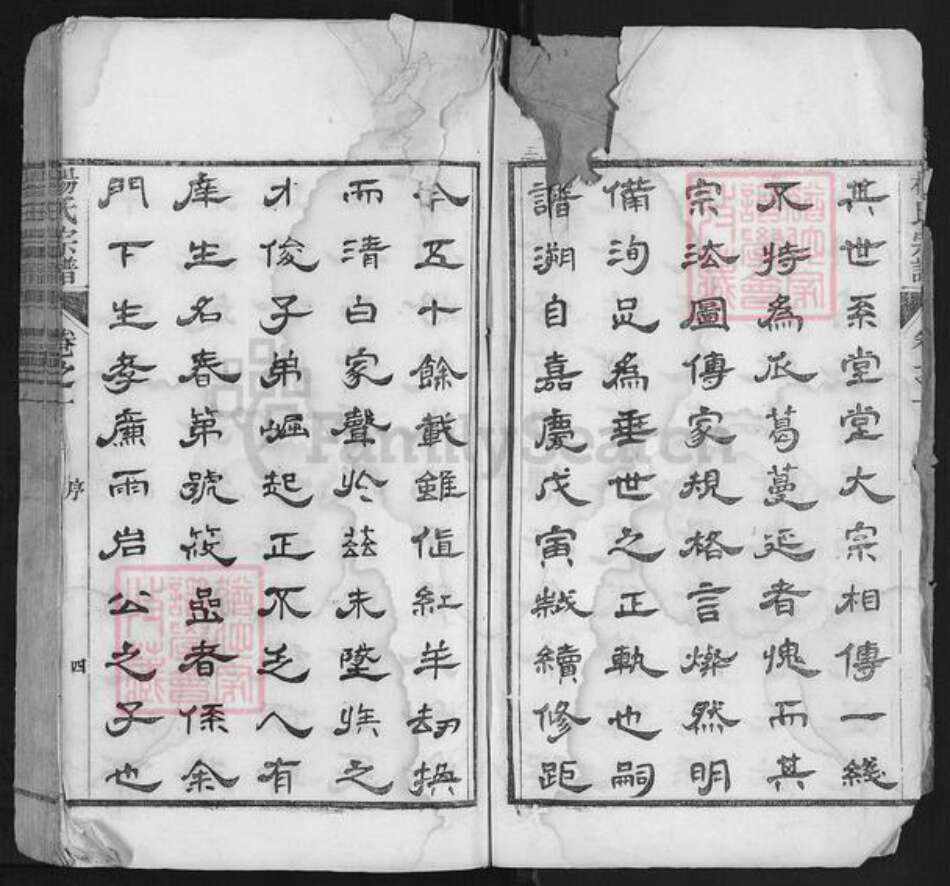 其世系堂堂大宗相傳一綫
不特為瓜葛蔓延者愧而其
宗法圖傳家規格言燦然明
備洵足為垂世之正軌也嗣
譜溯自嘉慶戊寅繼續修距
今五十餘載雖值紅羊刼換
而清白家聲於茲未墜族之
才俊子弟崛起正不乏人有
庠生名春第號筱嵒者係余
門下生孝廉雨岩公之子也
楊氏宗譜
卷之一
序
四
FamilySearch